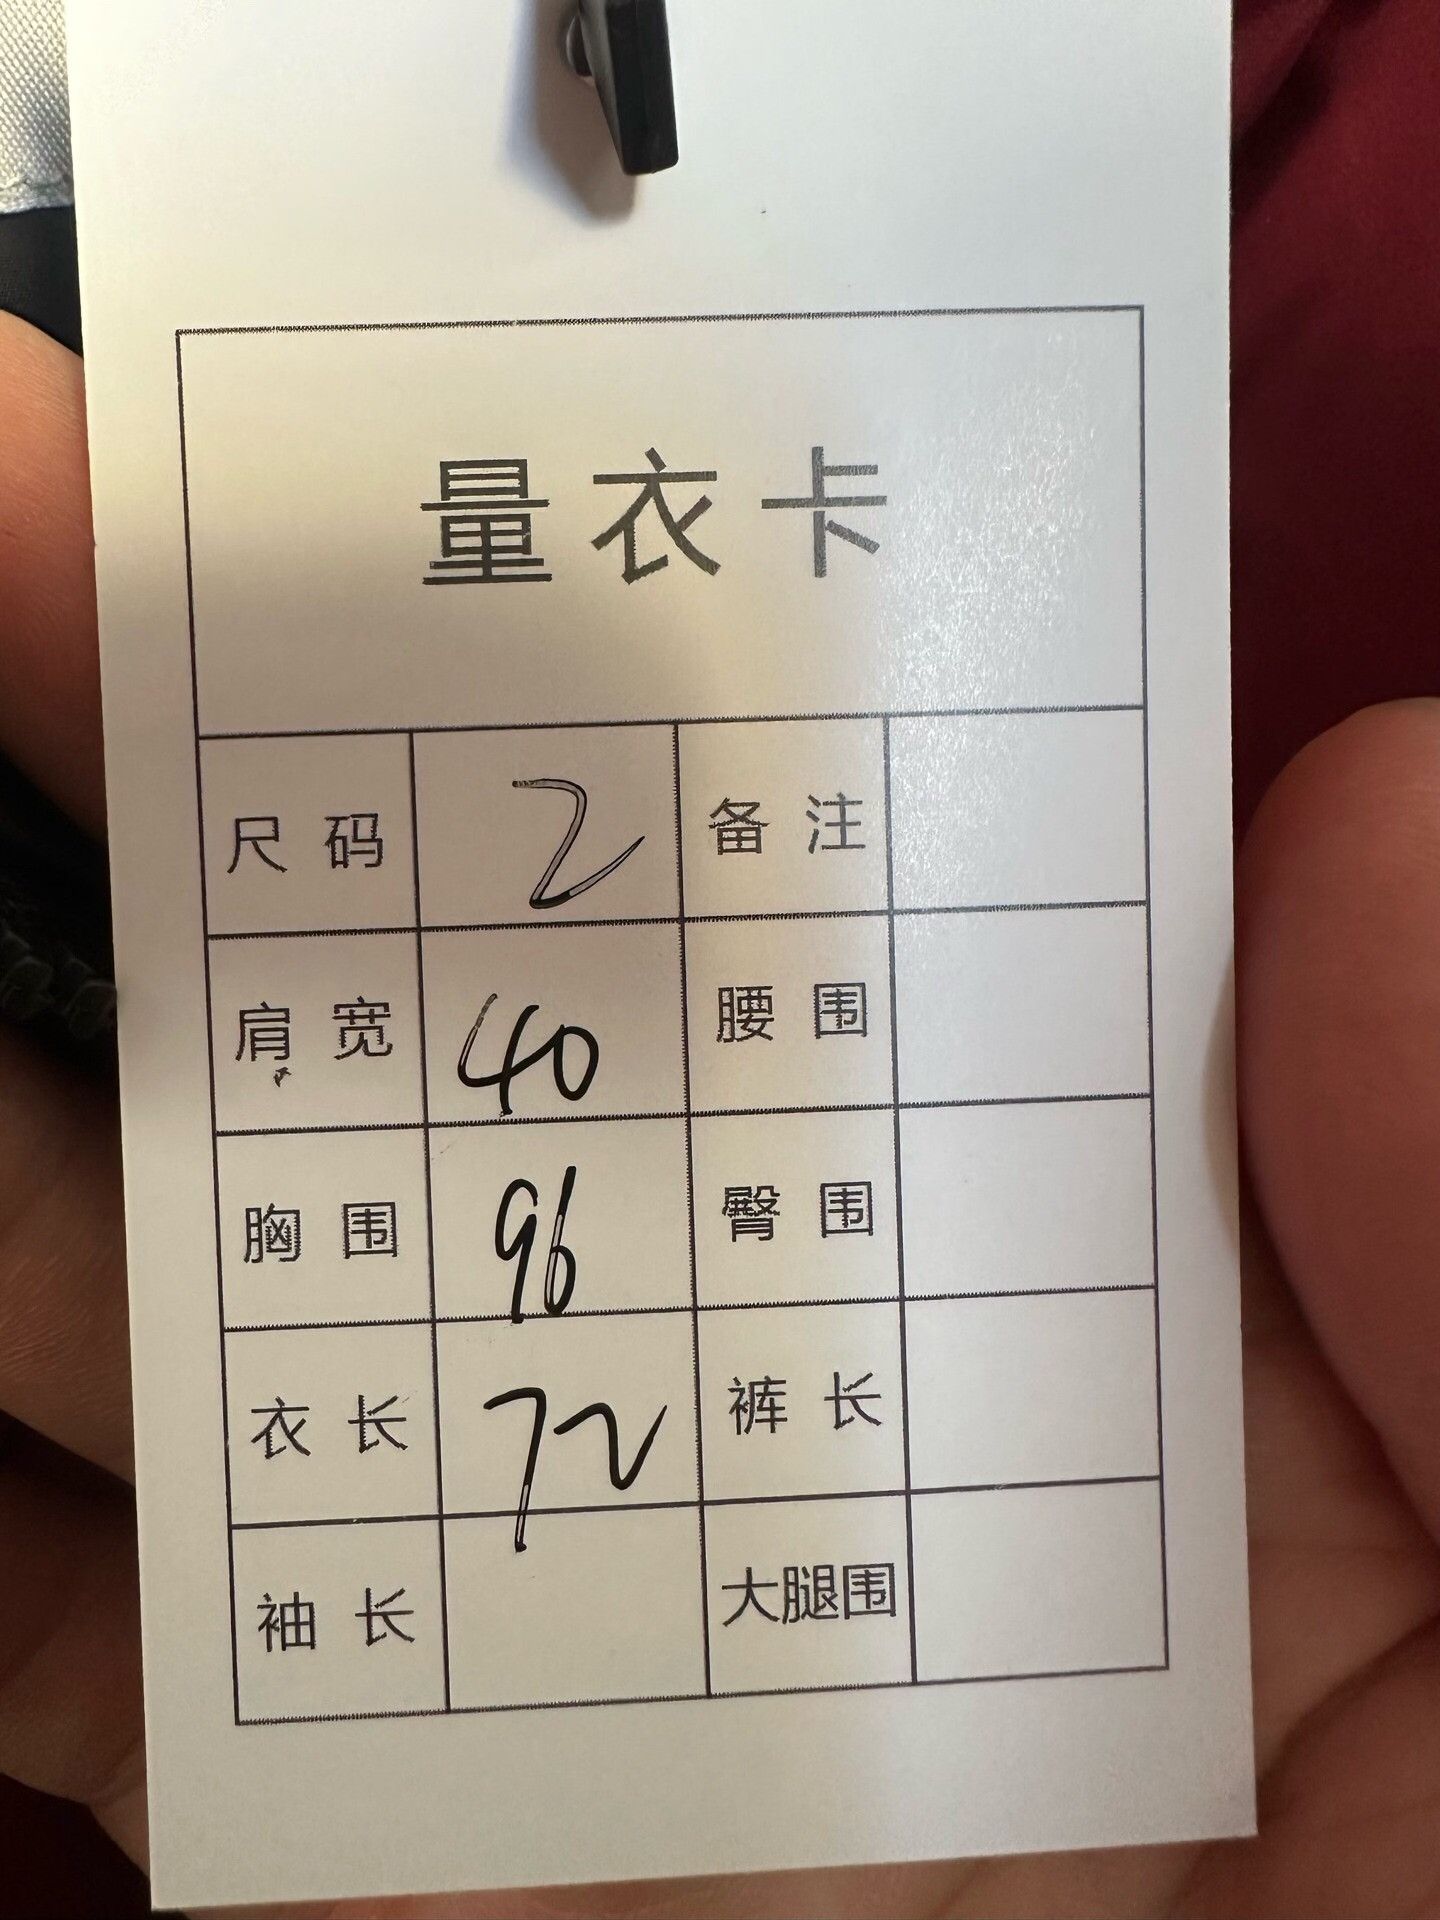 量衣卡
尺码 2 备注
肩宽 40 腰围
胸围 96 臀围
衣长 72 裤长
袖长 大腿围